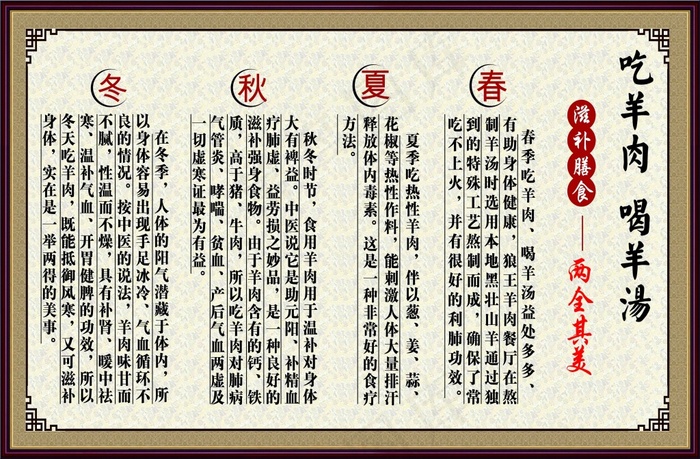 吃羊肉 喝羊汤
滋补膳食——两全其美
春
春季吃羊肉、喝羊汤益处多多、
有助身体健康，狼王羊肉餐厅在熬
制羊汤时选用本地黑壮山羊通过独
到的特殊工艺熬制而成，确保了常
吃不上火，并有很好的利肺功效。
夏
夏季吃热性羊肉，伴以葱、姜、蒜、
花椒等热性作料，能刺激人体大量排汗
释放体内毒素。这是一种非常好的食疗
方法。
秋
秋冬时节，食用羊肉用于温补对身体
大有裨益。中医说它是助元阳、补精血
疗肺虚、益劳损之妙品，是一种良好的
滋补强身食物。由于羊肉含有的钙、铁
质，高于猪、牛肉，所以吃羊肉对肺病
气管炎、哮喘、贫血、产后气血两虚及
一切虚寒证最为有益。
冬
在冬季，人体的阳气潜藏于体内，所
以身体容易出现手足冰冷、气血循环不
良的情况。按中医的说法，羊肉味甘而
不腻，性温而不燥，具有补肾、暖中祛
寒、温补气血、开胃健脾的功效，所以
冬天吃羊肉，既能抵御风寒，又可滋补
身体，实在是一举两得的美事。